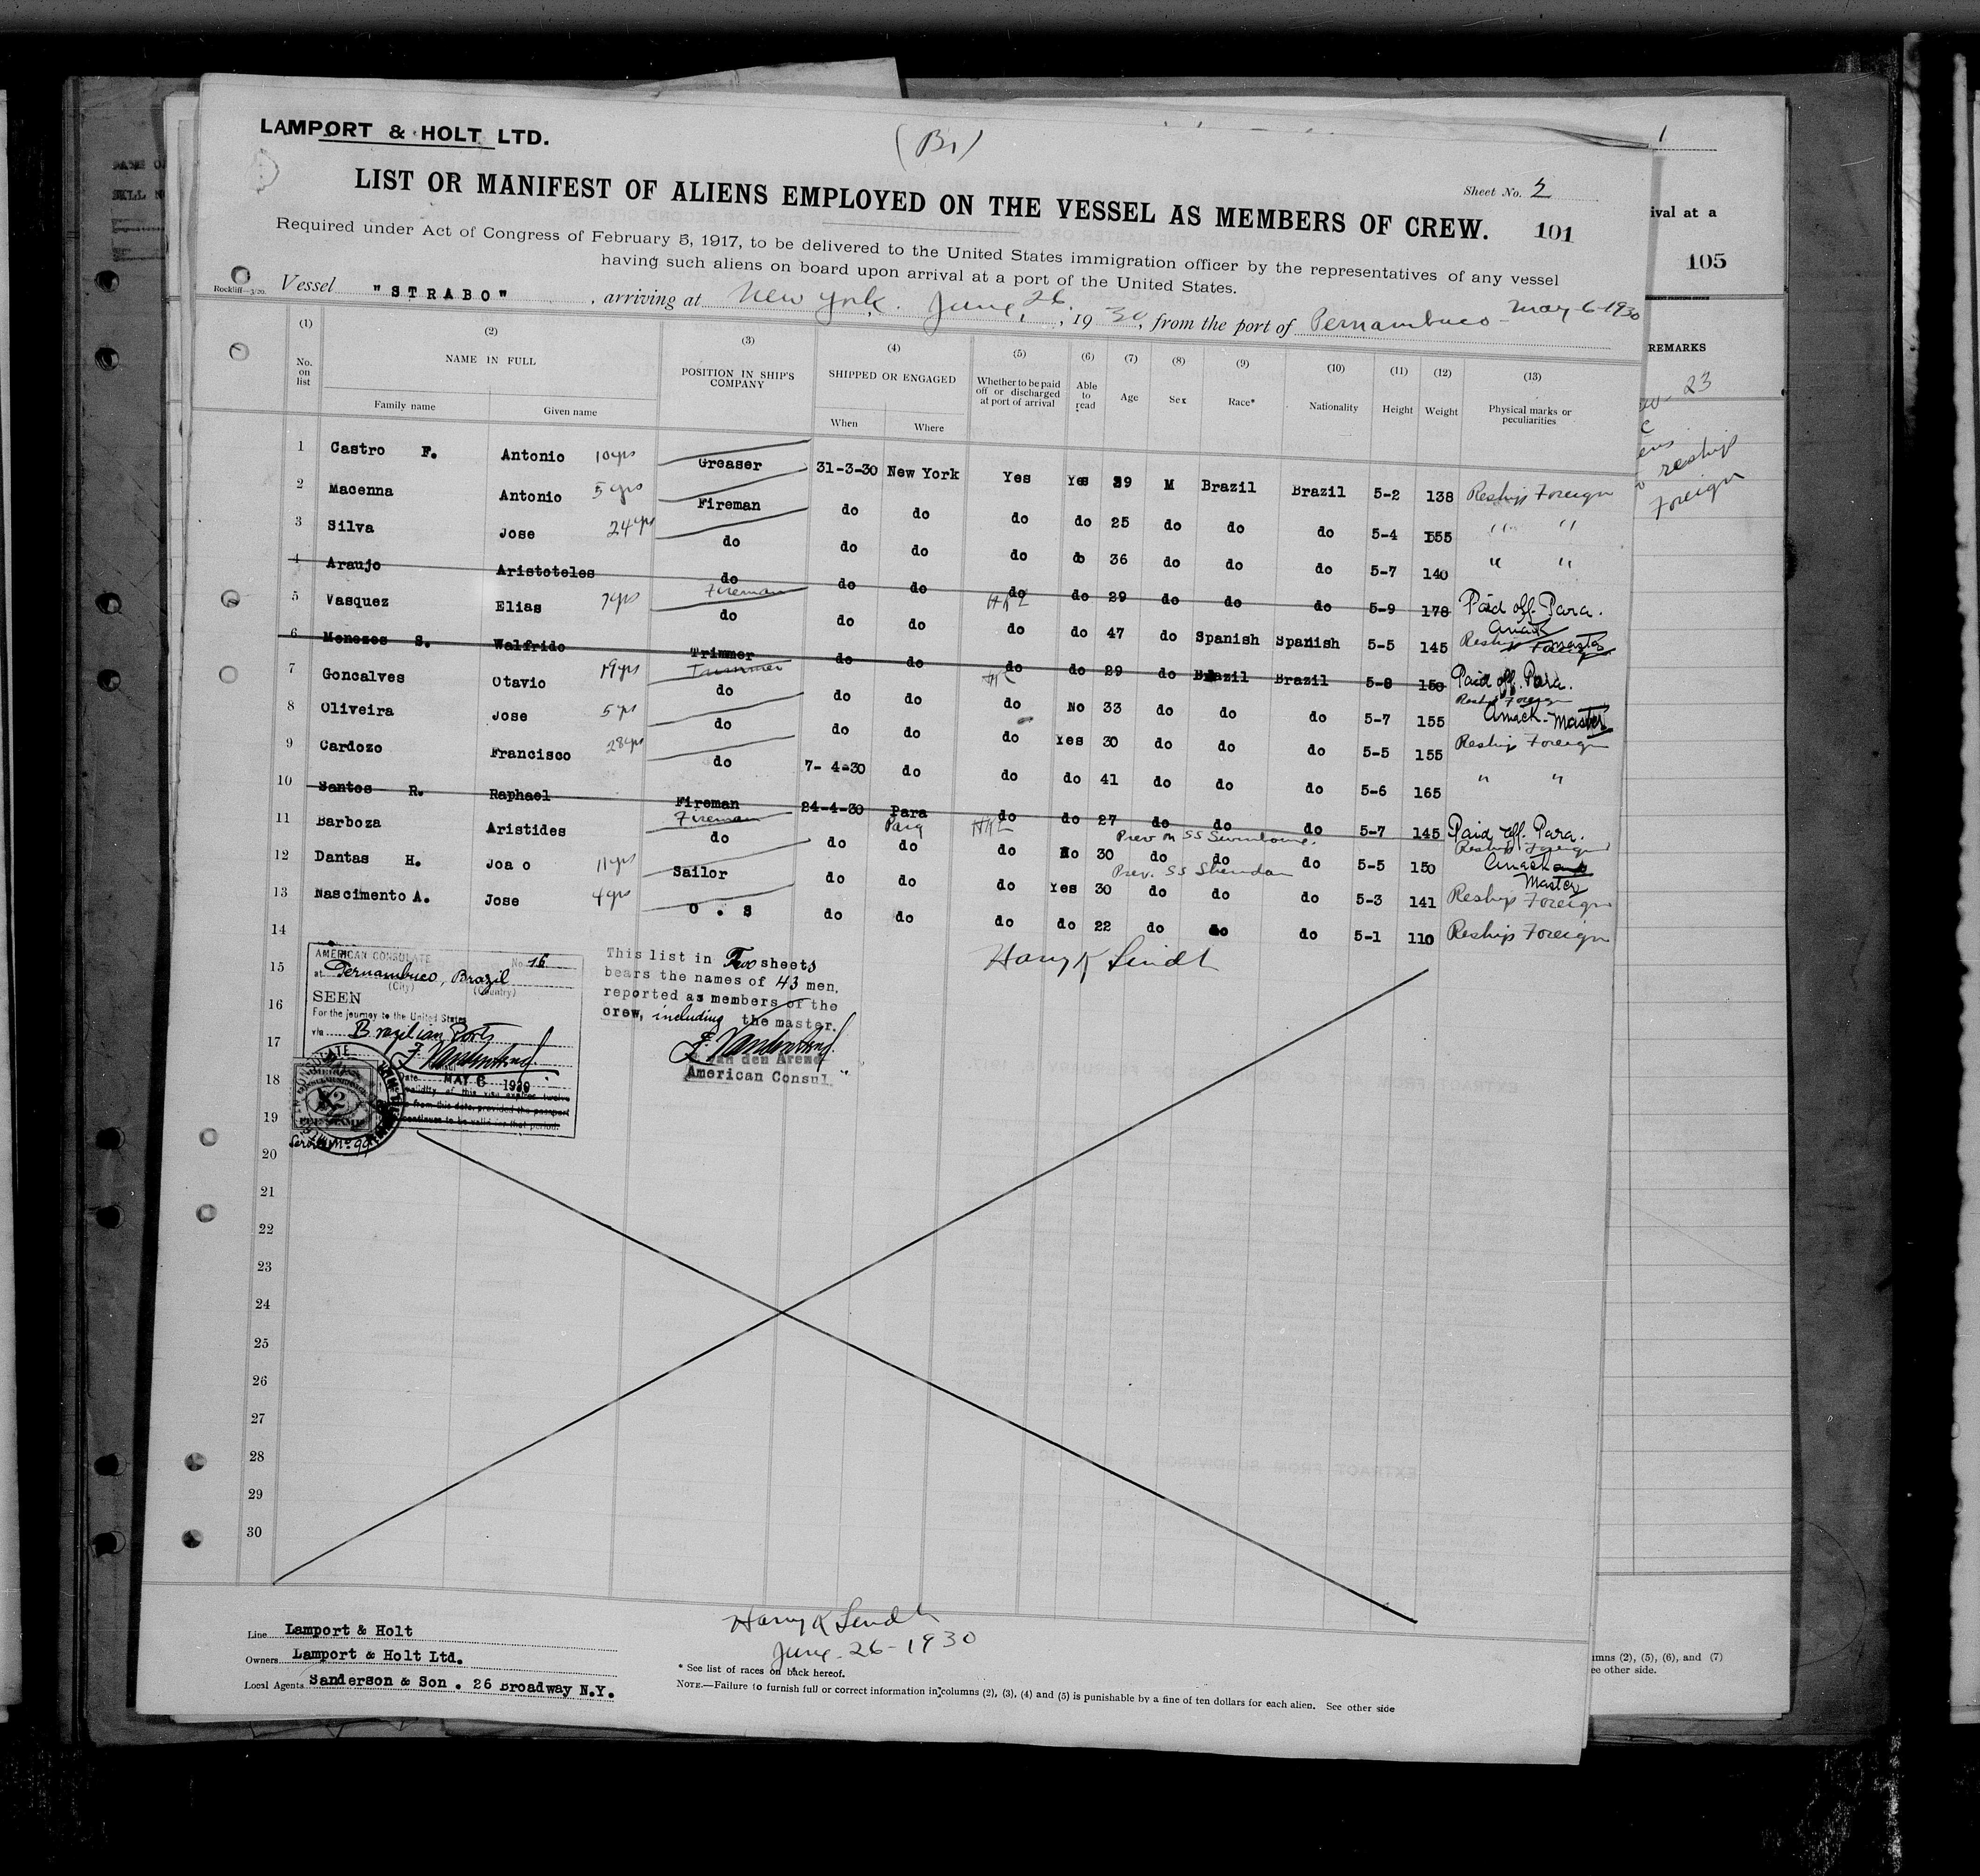 LAMPORT & HOLT LTD.
(Br)
LIST OR MANIFEST OF ALIENS EMPLOYED ON THE VESSEL AS MEMBERS OF CREW.
Sheet No. 2
101
Required under Act of Congress of February 5, 1917, to be delivered to the United States immigration officer by the representatives of any vessel
having such aliens on board upon arrival at a port of the United States.
Vessel "STRABO", arriving at New York. June, 26, 1930, from the port of Pernambuco - May 6-1930
(1) (2) (3) (4) (5) (6) (7) (8) (9) (10) (11) (12) (13)
No. on list NAME IN FULL POSITION IN SHIP'S COMPANY SHIPPED OR ENGAGED Whether to be paid off or discharged at port of arrival Able to read Age Sex Race* Nationality Height Weight Physical marks or peculiarities
Family name Given name When Where
1 Castro F. Antonio 10yrs Greaser 31-3-30 New York Yes Yes 39 M Brazil Brazil 5-2 138 Reship Foreign
2 Macenna Antonio 5 yrs Fireman do do do do 25 do do do 5-4 155 " "
3 Silva Jose 24yrs do do do do do 36 do do do 5-7 140 " "
4 Araujo Aristoteles do do do do do 29 do do do 5-9 178 Paid off. Para.
5 Vasquez Elias 7yrs Fireman do do do do do 47 do Spanish Spanish 5-5 145 Reship
6 Menezes S. Walfrido Trimmer do do do do 29 do Brazil Brazil 5-8 150 Paid off. Para.
7 Goncalves Otavio 19yrs Trimmer do do do do No 33 do do do 5-7 155 Reship Foreign Master
8 Oliveira Jose 5 yrs do do do do Yes 30 do do do 5-5 155 Reship Foreign
9 Cardozo Francisco 28yrs do 7-4-30 do do do 41 do do do 5-6 165 " "
10 Santos R. Raphael Fireman 24-4-30 Para do do 27 do do do 5-7 145 Paid off. Para.
11 Barboza Aristides Fireman do do Para do do No 30 do do do 5-5 150 Reship Foreign Master
Prev. on SS
12 Dantas H. Joa o 11yrs Sailor do do do Yes 30 do do do 5-3 141 Reship Foreign
Prev. SS Sheridan
13 Nascimento A. Jose 4yrs O . S do do do do 22 do do do 5-1 110 Reship Foreign
14
Harry K Lindt
15
16
17
18
19
20
21
22
23
24
25
26
27
28
29
30
AMERICAN CONSULATE No. 16
at Pernambuco, Brazil
(City) (Country)
SEEN
For the journey to the United States
via Brazilian Ports
Consul
Date MAY 6 1930
validity of this visa expires twelve
from this date, provided the passport
continues to be valid for that period.
Service No 99
This list in Two sheets
bears the names of 43 men,
reported as members of the
crew, including the master.
van den Arend
American Consul.
Line Lamport & Holt
Owners Lamport & Holt Ltd.
Local Agents Sanderson & Son . 26 Broadway N.Y.
Harry K Lindt
June - 26 - 1930
* See list of races on back hereof.
NOTE.—Failure to furnish full or correct information in columns (2), (3), (4) and (5) is punishable by a fine of ten dollars for each alien. See other side
ival at a
105
REMARKS
23
reship
Foreign
umns (2), (5), (6), and (7)
ee other side.